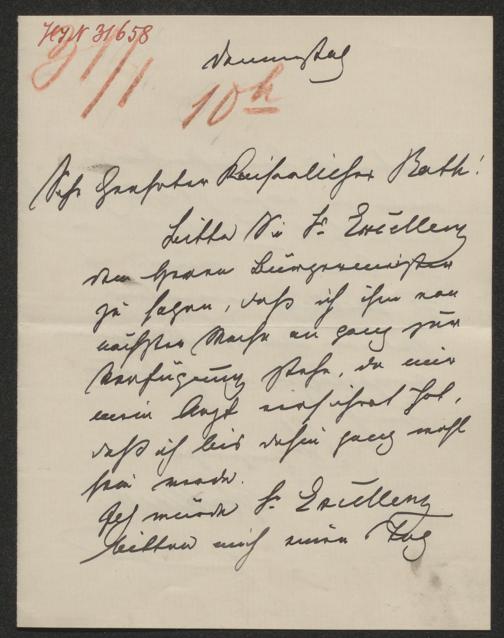 HJN 31658
31/1
Donnerstag
10 h
Sehr Geehrter Kaiserlicher Rath!
Bitte Sie Sr Excellenz
dem Herrn Bürgermeister
zu sagen, daß ich ihm von
nächster Woche an ganz zur
Verfügung stehe, da mir
mein Arzt versichert hat,
daß ich bis dahin ganz wohl
sein werde.
Ich würde Sr Excellenz
bitten mich einen Tag